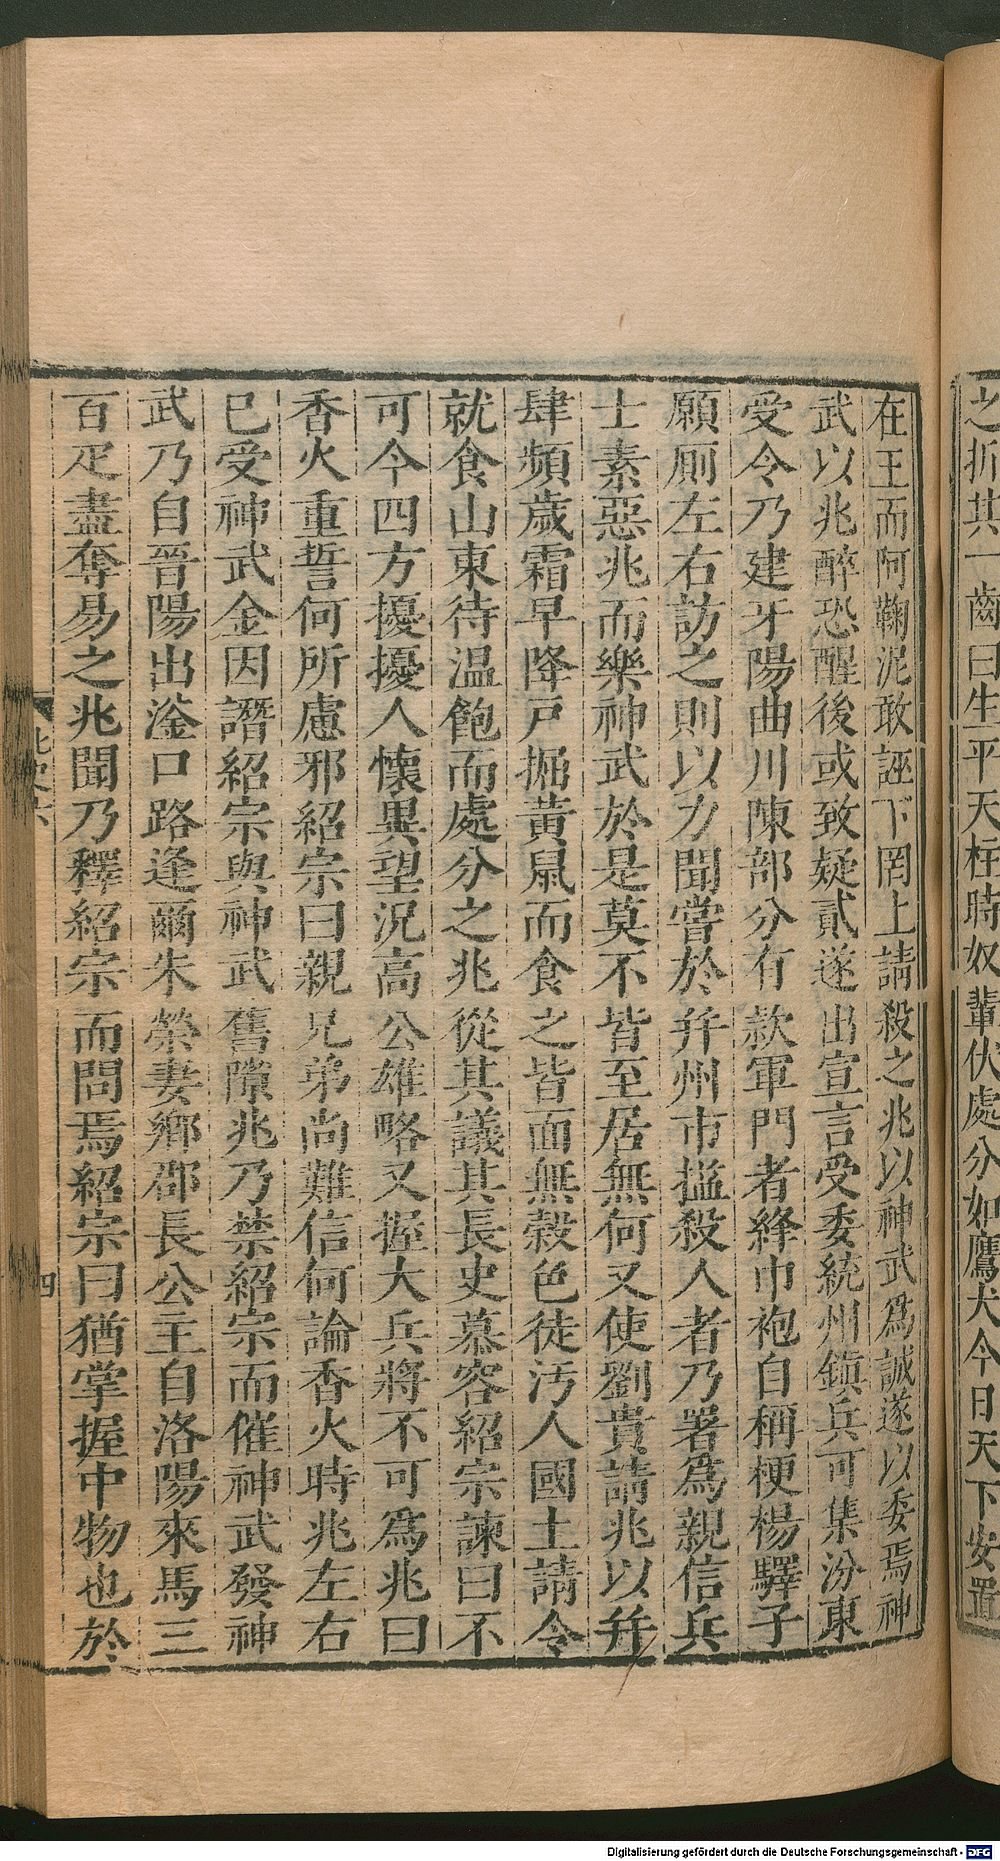 之折其一齒曰生平天柱時奴輩伏處分如鷹犬今日天下安置
在王而阿鞠泥敢誣下罔上請殺之兆以神武爲誠遂以委焉神
武以兆醉恐醒後或致疑貳遂出宣言受委統州鎭兵可集汾東
受令乃建牙陽曲川陳部分有款軍門者絳巾袍自稱梗楊驛子
願厠左右訪之則以力聞嘗於幷州市搤殺人者乃署爲親信兵
士素惡兆而樂神武於是莫不皆至居無何又使劉貴請兆以幷
肆頻歲霜旱降戸掘黃鼠而食之皆面無穀色徒汚人國土請令
就食山東待温飽而處分之兆從其議其長史慕容紹宗諫曰不
可今四方擾擾人懷異望況高公雄略又握大兵將不可爲兆曰
香火重誓何所慮邪紹宗曰親兄弟尚難信何論香火時兆左右
已受神武金因譖紹宗與神武舊隙兆乃禁紹宗而催神武發神
武乃自晉陽出滏口路逢爾朱榮妻鄉郡長公主自洛陽來馬三
百疋盡奪易之兆聞乃釋紹宗而問焉紹宗曰猶掌握中物也於
北史六
四
Digitalisierung gefördert durch die Deutsche Forschungsgemeinschaft - DFG